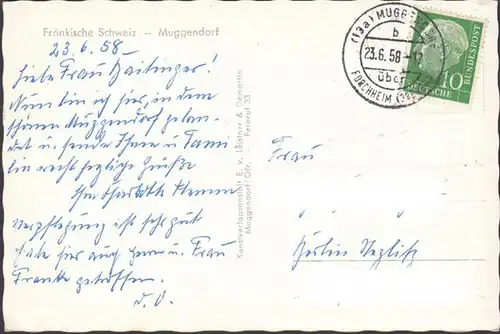 Fränkische Schweiz – Muggendorf
23.6.58 –
Liebe Frau Haitinger!
Nun bin ich hier, in dem
schönen Muggendorf gelan-
det u. sende Ihnen u.
bin recht herzliche Grüße
Ihre Charlotte
Verpflegung ist sehr gut
habe hier auch Herrn u. Frau
Franke getroffen.
D. O.
Kunstverlagsanstalt E. v. Leistner & Clementine
Muggendorf/Ofr. – Fernruf 33
(13a) MUGGENDORF
b
23.6.58 – 17
über
FORCHHEIM
10
DEUTSCHE BUNDESPOST
Frau
Berlin Steglitz